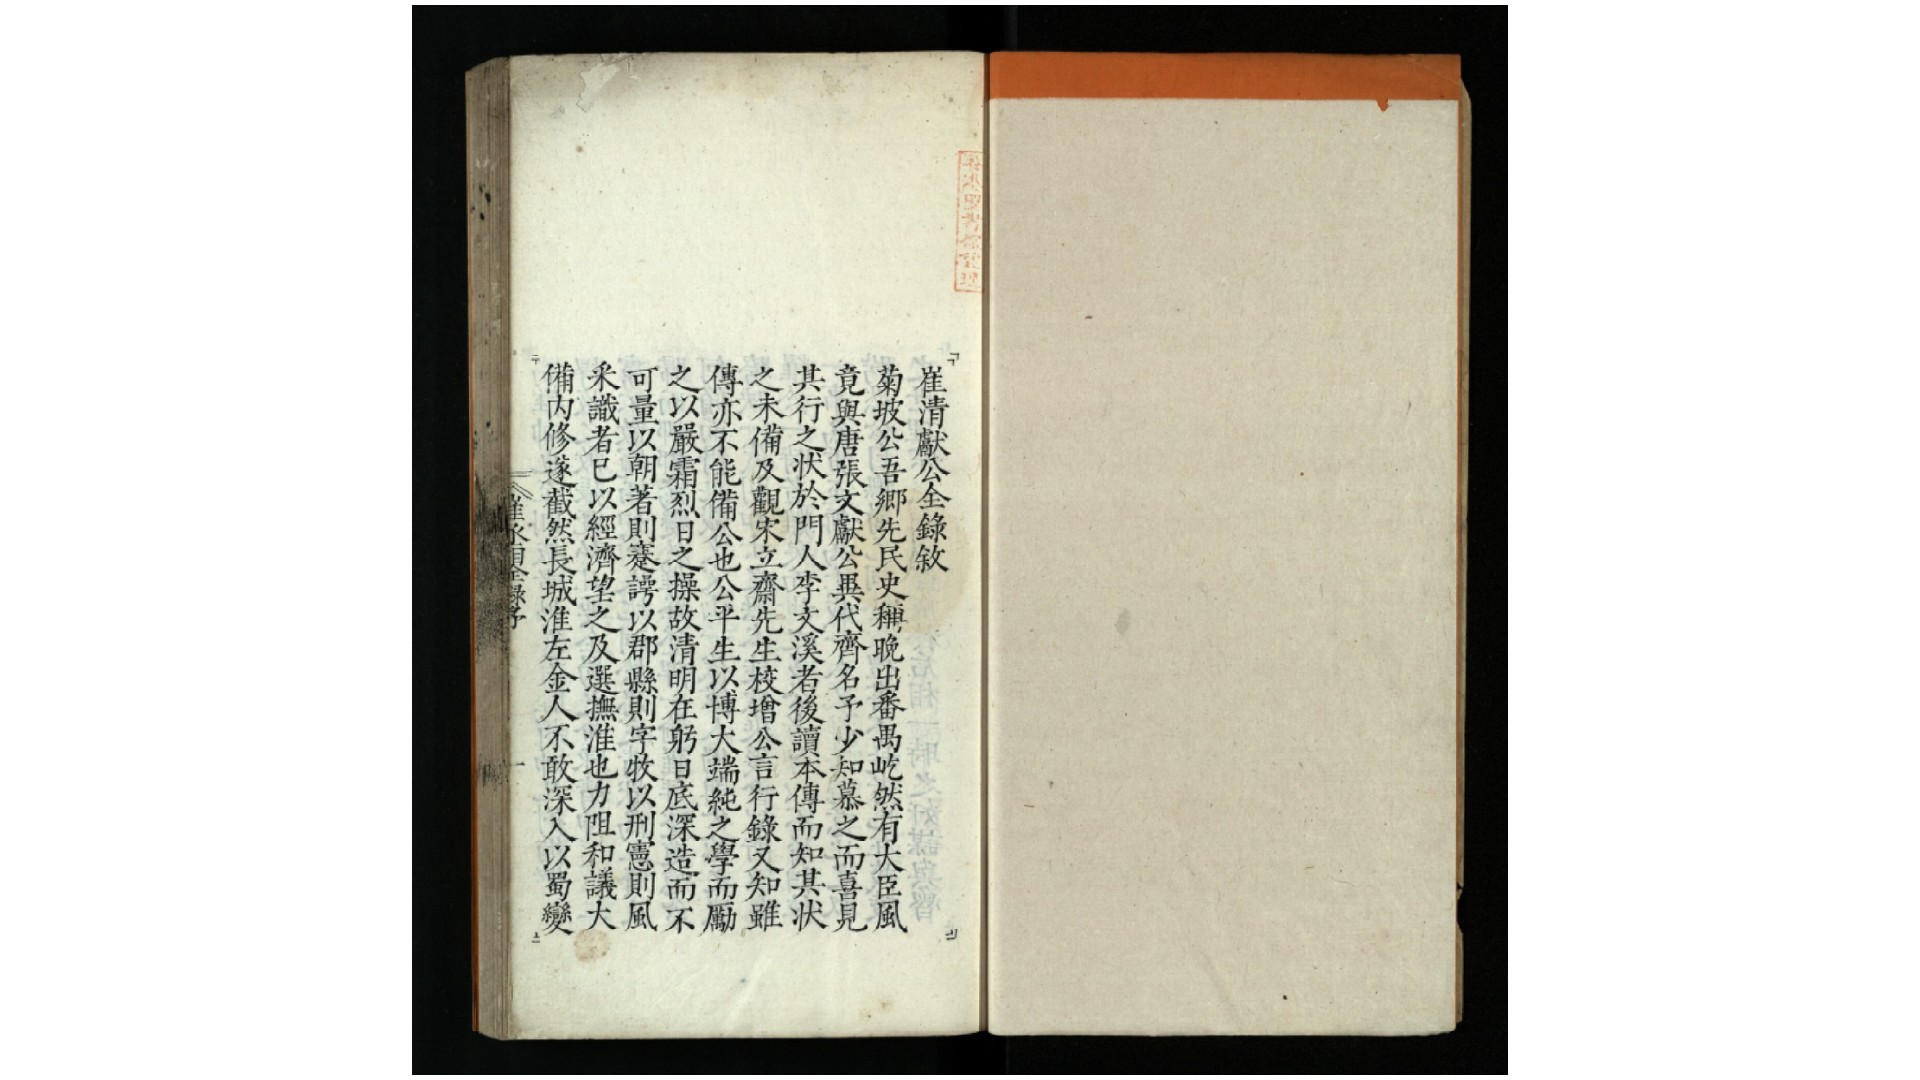 崔清獻公全錄敘
菊坡公吾鄉先民史稱晚出番禺屹然有大臣風
竟與唐張文獻公異代齊名予少知慕之而喜見
其行之状於門人李文溪者後讀本傳而知其状
之未備及觀宋立齋先生校增公言行錄又知雖
傳亦不能備公也公平生以博大端純之學而勵
之以嚴霜烈日之操故清明在躬日底深造而不
可量以朝著則蹇諤以郡縣則字牧以刑憲則風
采識者已以經濟望之及選撫淮也力阻和議大
備內修遂截然長城淮左金人不敢深入以蜀變